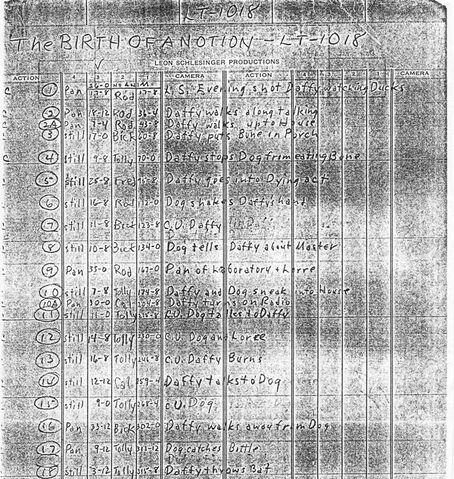 LT-1018
The BIRTH OF A NOTION - LT-1018
LEON SCHLESINGER PRODUCTIONS
ACTION 4 3 2 1 CAMERA ACTION 4 3 2 1 CAMERA
1 Pan Rod L.S. Evening shot Daffy watching Ducks
2 Pan 18-12 Rod Daffy walks along talking
2A Pan Rod Daffy walks up to House
3 still 17-0 Bick Daffy puts Bone in Porch
4 still 9-8 Tolly 70-0 Daffy stops Dog from eating Bone
5 still 25-8 Fred 95-8 Daffy goes into Dying act
6 still 16-8 Rod 112-0 Dog shakes Daffy's hand
7 still 11-8 Bick 123-8 C.U. Daffy
8 still 10-8 Bick 134-0 Dog tells Daffy about Master
9 Pan 33-0 Rod 167-0 Pan of Laboratory & Lorre
10 still 7-8 Tolly 174-8 Daffy and Dog sneak into House
10A Pan 30-0 Cal Daffy turns on Radio
11 still 11-0 Tolly C.U. Dog talks to Daffy
12 still 14-8 Tolly C.U. Dog and Lorre
13 still 16-8 Tolly C.U. Daffy Burns
14 still 12-12 Cal 259-4 Daffy talks to Dog
15 still 9-0 Tolly C.U. Dog
16 Pan 33-12 Bick 302-0 Daffy walks away from Dog
17 Pan 9-12 Tolly 311-12 Dog catches Bottle
18 still 3-12 Tolly 315-8 Daffy throws Bat